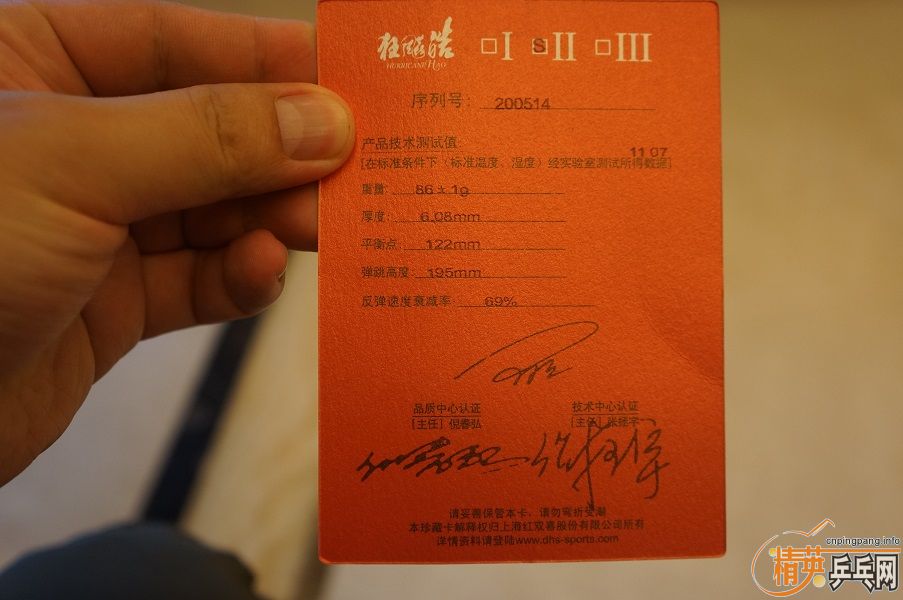 狂飚皓 □I SII □III
HURRICANE HAO
序列号: 200514
产品技术测试值: 11 07
[在标准条件下（标准温度、湿度）经实验室测试所得数据]
重量: 86±1g
厚度: 6.08mm
平衡点: 122mm
弹跳高度: 195mm
反弹速度衰减率: 69%
品质中心认证 技术中心认证
[主任] 倪春弘 [主任] 张择宇
请妥善保管本卡，请勿弯折受潮
本珍藏卡解释权归上海红双喜股份有限公司所有
详情资料请登陆www.dhs-sports.com
cnpingpang.info
精英乒乓网